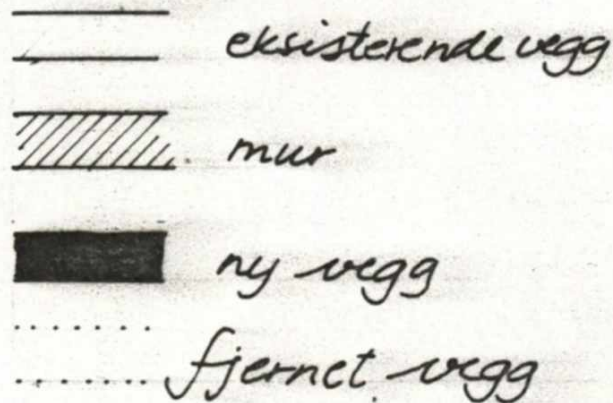 eksisterende vegg
mur
ny vegg
fjernet vegg